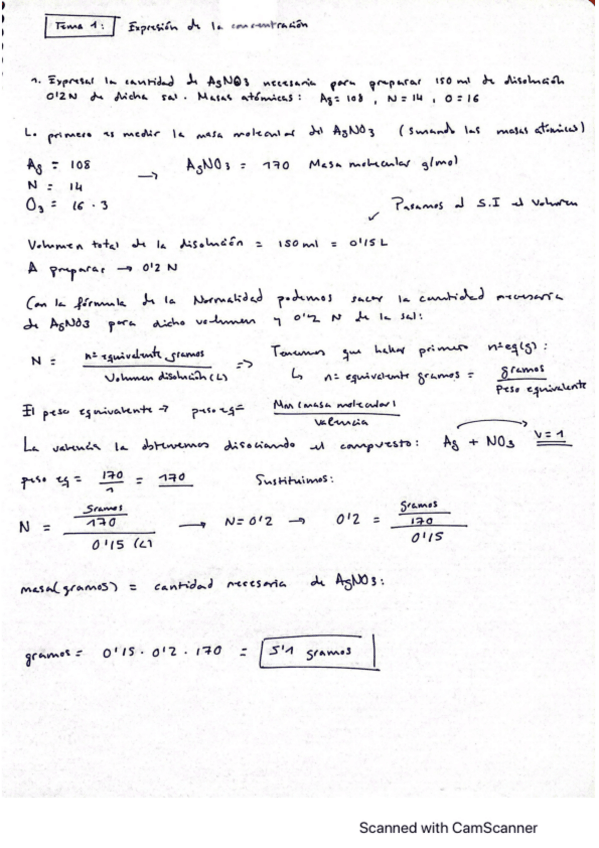 Tema 1: Expresión de la concentración
1. Expresar la cantidad de AgNO3 necesaria para preparar 150 ml de disolución
0'2N de dicha sal. Masas atómicas: Ag = 108, N = 14, O = 16
Lo primero es medir la masa molecular del AgNO3 (sumando las masas atómicas)
Ag = 108 → AgNO3 = 170 Masa molecular g/mol
N = 14
O3 = 16 · 3
Pasamos al S.I el volumen
Volumen total de la disolución = 150 ml = 0'15 L
A preparar → 0'2 N
Con la fórmula de la Normalidad podemos sacar la cantidad necesaria
de AgNO3 para dicho volumen y 0'2 N de la sal:
N = nº equivalente gramos / Volumen disolución (L) => Tenemos que hallar primero nº eq(g):
↳ nº equivalente gramos = gramos / Peso equivalente
El peso equivalente → peso eq = Mm (masa molecular) / Valencia
La valencia la obtenemos disociando el compuesto: Ag + NO3 V = 1
peso eq = 170 / 1 = 170 Sustituimos:
N = gramos / 170 / 0'15 (L) → N = 0'2 → 0'2 = gramos / 170 / 0'15
masa (gramos) = cantidad necesaria de AgNO3:
gramos = 0'15 · 0'2 · 170 = 5'1 gramos
Scanned with CamScanner